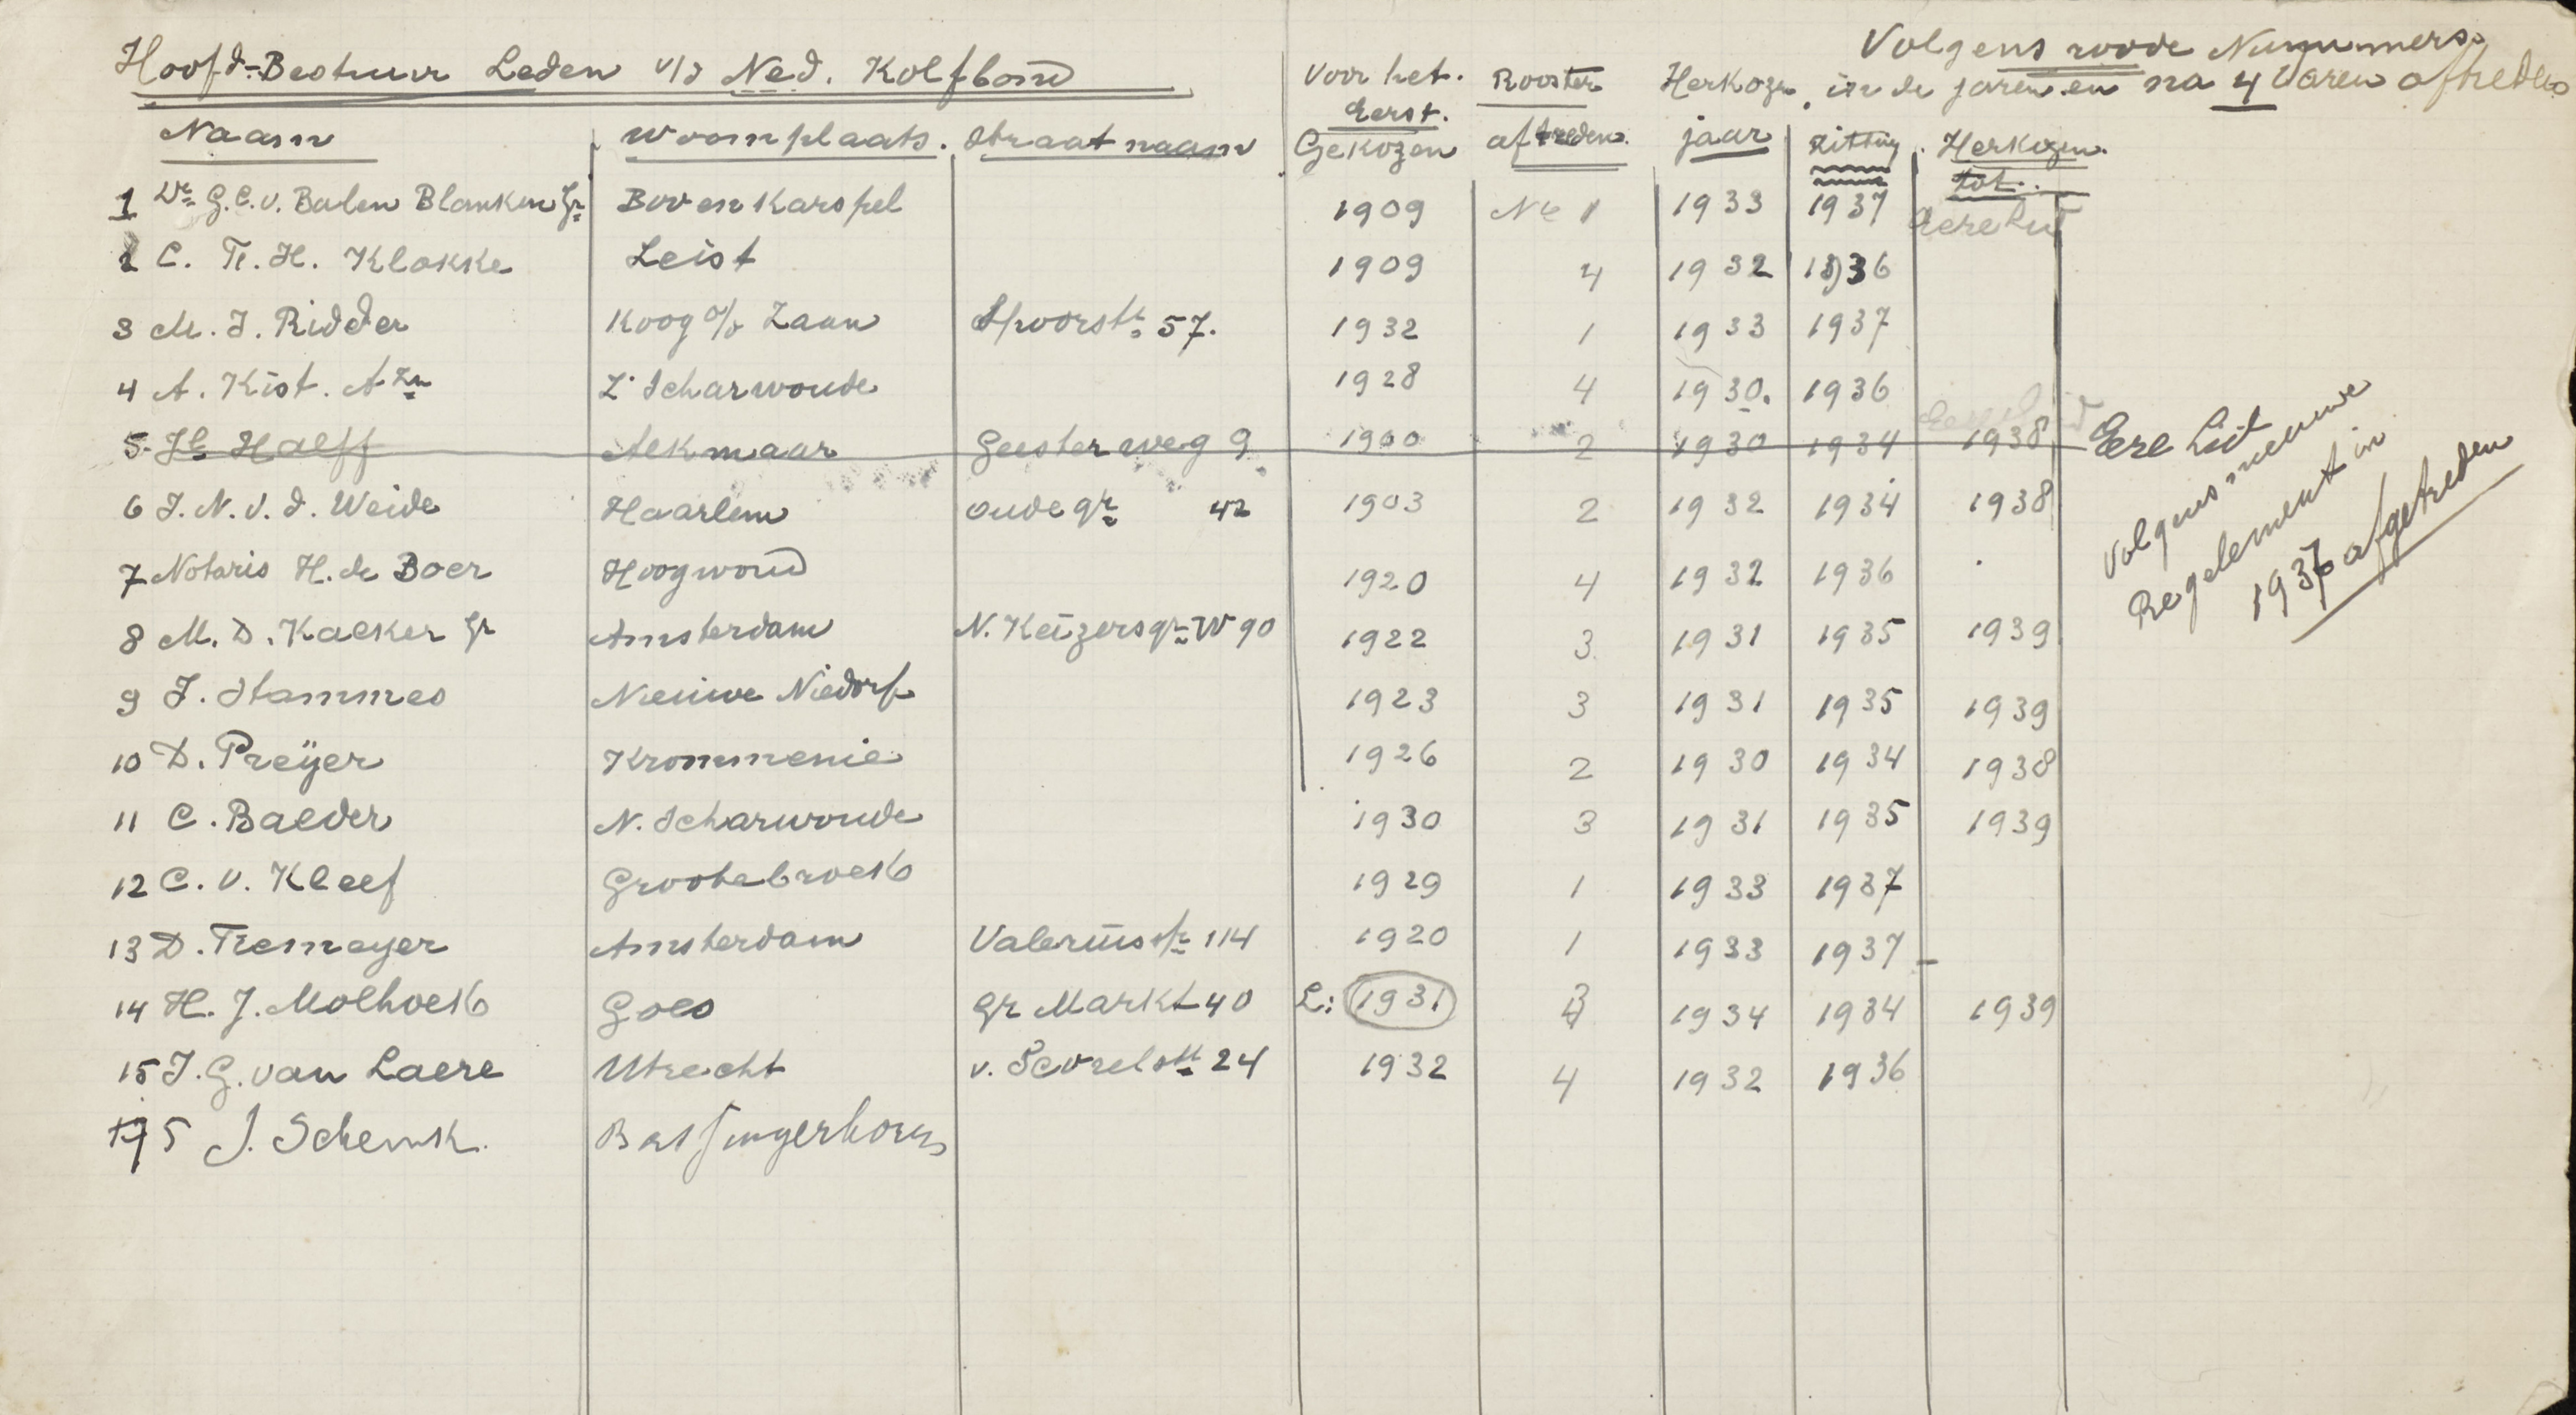 Hoofd-Bestuur Leden v/d Ned. Kolfbond
Volgens roode Nummers.
in de jaren en na 4 Jaren aftreden
Naam Woonplaats. Straatnaam Voor het. Eerst. Gekozen Rooster aftreden. Herkozen jaar zitting Herkozen. tot.
1 Dr. G. C. v. Balen Blanken Jr Bovenkarspel 1909 No 1 1933 1937 Eere Lid
2 C. Tr. H. Klokke Zeist 1909 4 1932 1936
3 M. J. Ridder Koog a/d Zaan Spoorstr. 57. 1932 1 1933 1937
4 A. Kist. Azn Z. Scharwoude 1928 4 1930. 1936
5. Jb Halff Alkmaar Geesterweg 9 1900 2 1930 1934 1938 Eere Lid
6 J. N. v. d. Weide Haarlem Oude gr. 42 1903 2 1932 1934 1938
7 Notaris H. de Boer Hoogwoud 1920 4 1932 1936
8 M. D. Kalker Jr Amsterdam N. Keizersgr. W 90 1922 3 1931 1935 1939
9 J. Stammes Nieuwe Niedorp 1923 3 1931 1935 1939
10 D. Preÿer Krommenie 1926 2 1930 1934 1938
11 C. Balder N. Scharwoude 1930 3 1931 1935 1939
12 C. v. Kleef Grootebroek 1929 1 1933 1937
13 D. Tremeyer Amsterdam Valeriusstr. 114 1920 1 1933 1937
14 H. J. Molhoek Goes Gr Markt 40 L: 1931 3 1934 1934 1939
15 J. G. van Laere Utrecht v. Scorelstr. 24 1932 4 1932 1936
5 J. Schenk. Barsingerhorn
Volgens nieuwe
Regelement in
1937 afgetreden